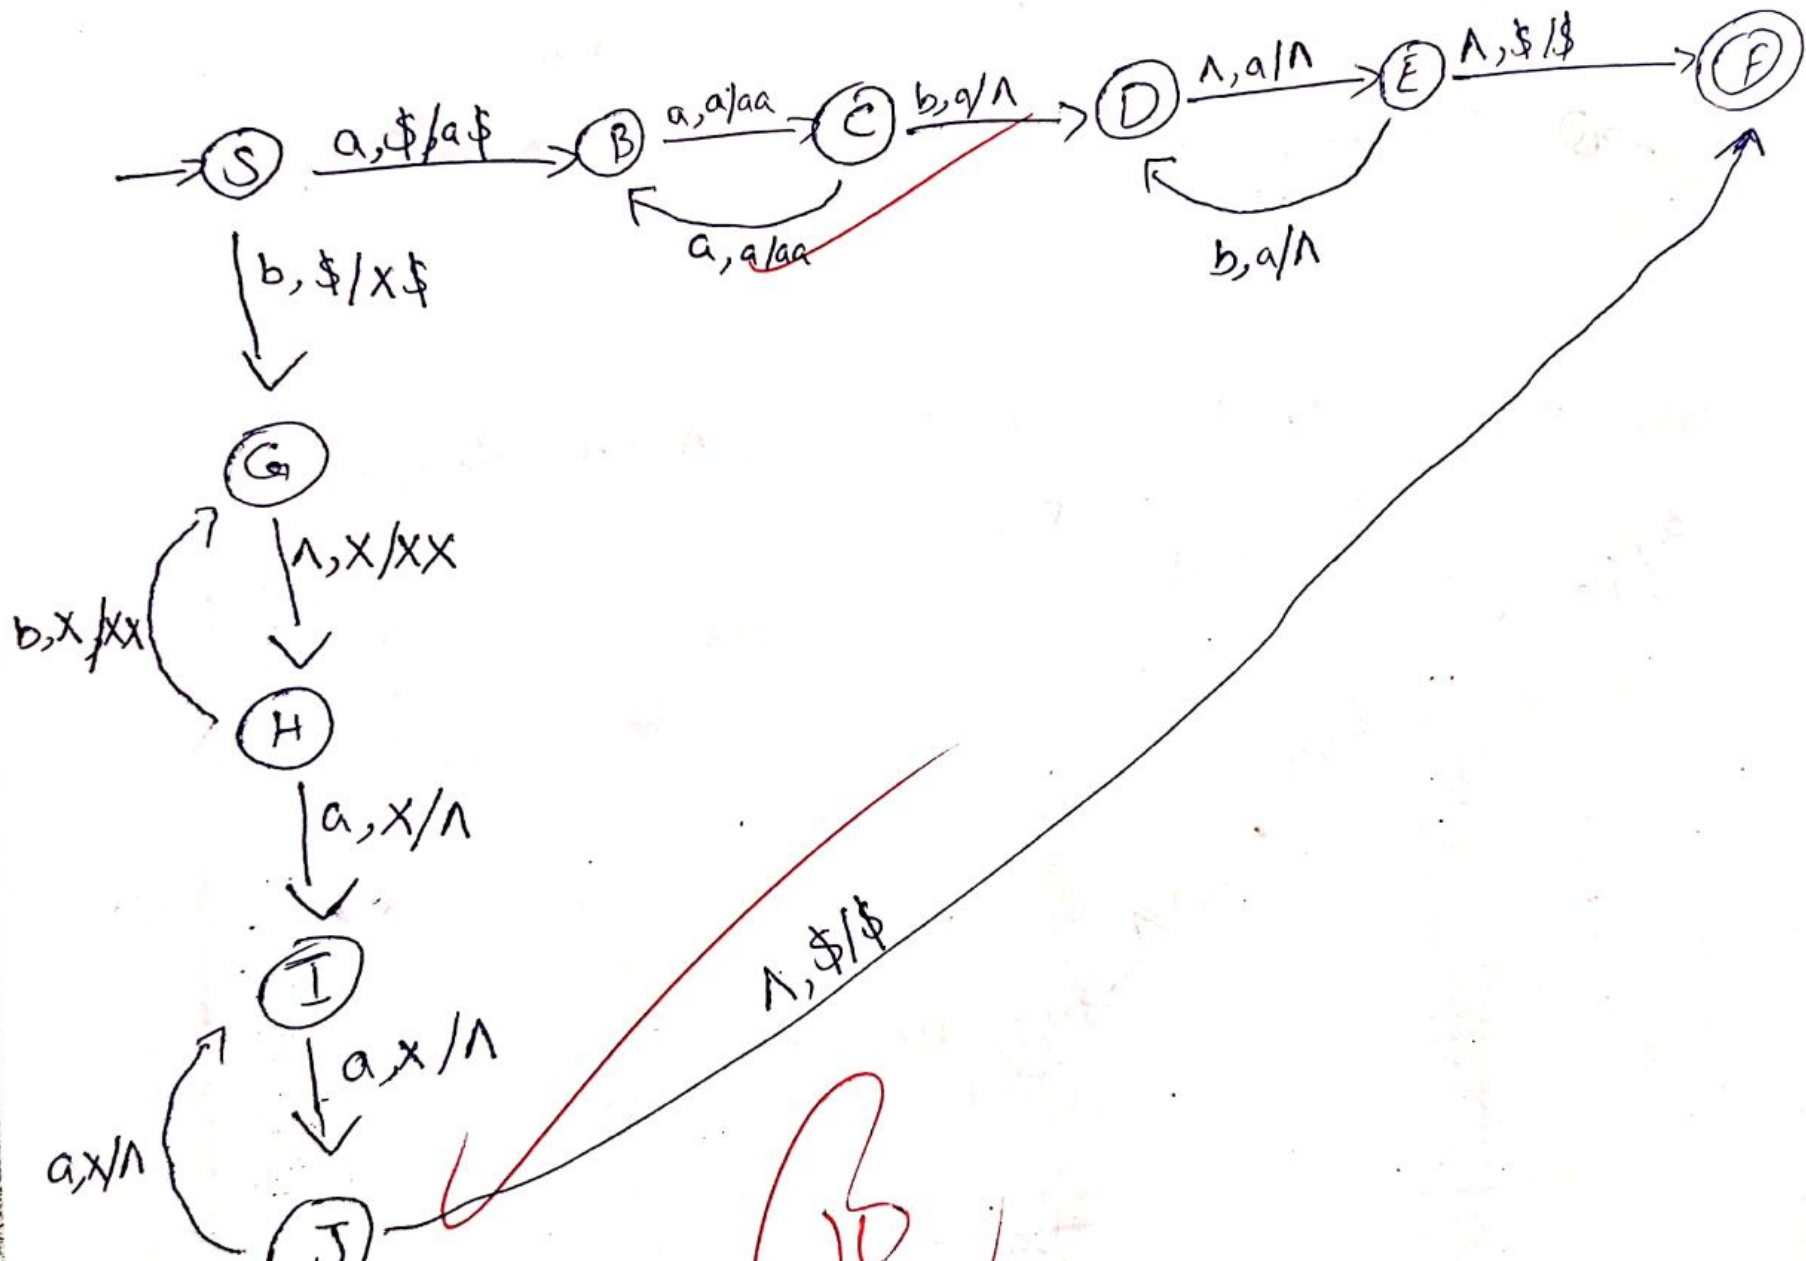 S
a,$/a$
B
a,a/aa
C
b,a/Λ
D
Λ,a/Λ
E
Λ,$/$
F
a,a/aa
b,a/Λ
b,$/X$
G
Λ,X/XX
b,X/XX
H
a,X/Λ
I
a,X/Λ
a,X/Λ
J
Λ,$/$